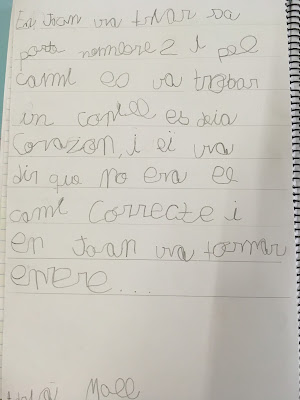 En Joan va triar sa
porta nombre 2 i pel
camí es va trobar
un conill es deia
Corazon, i ei va
dir que no era el
camí Correcte i
en Joan va tornar
enrere...
Mall